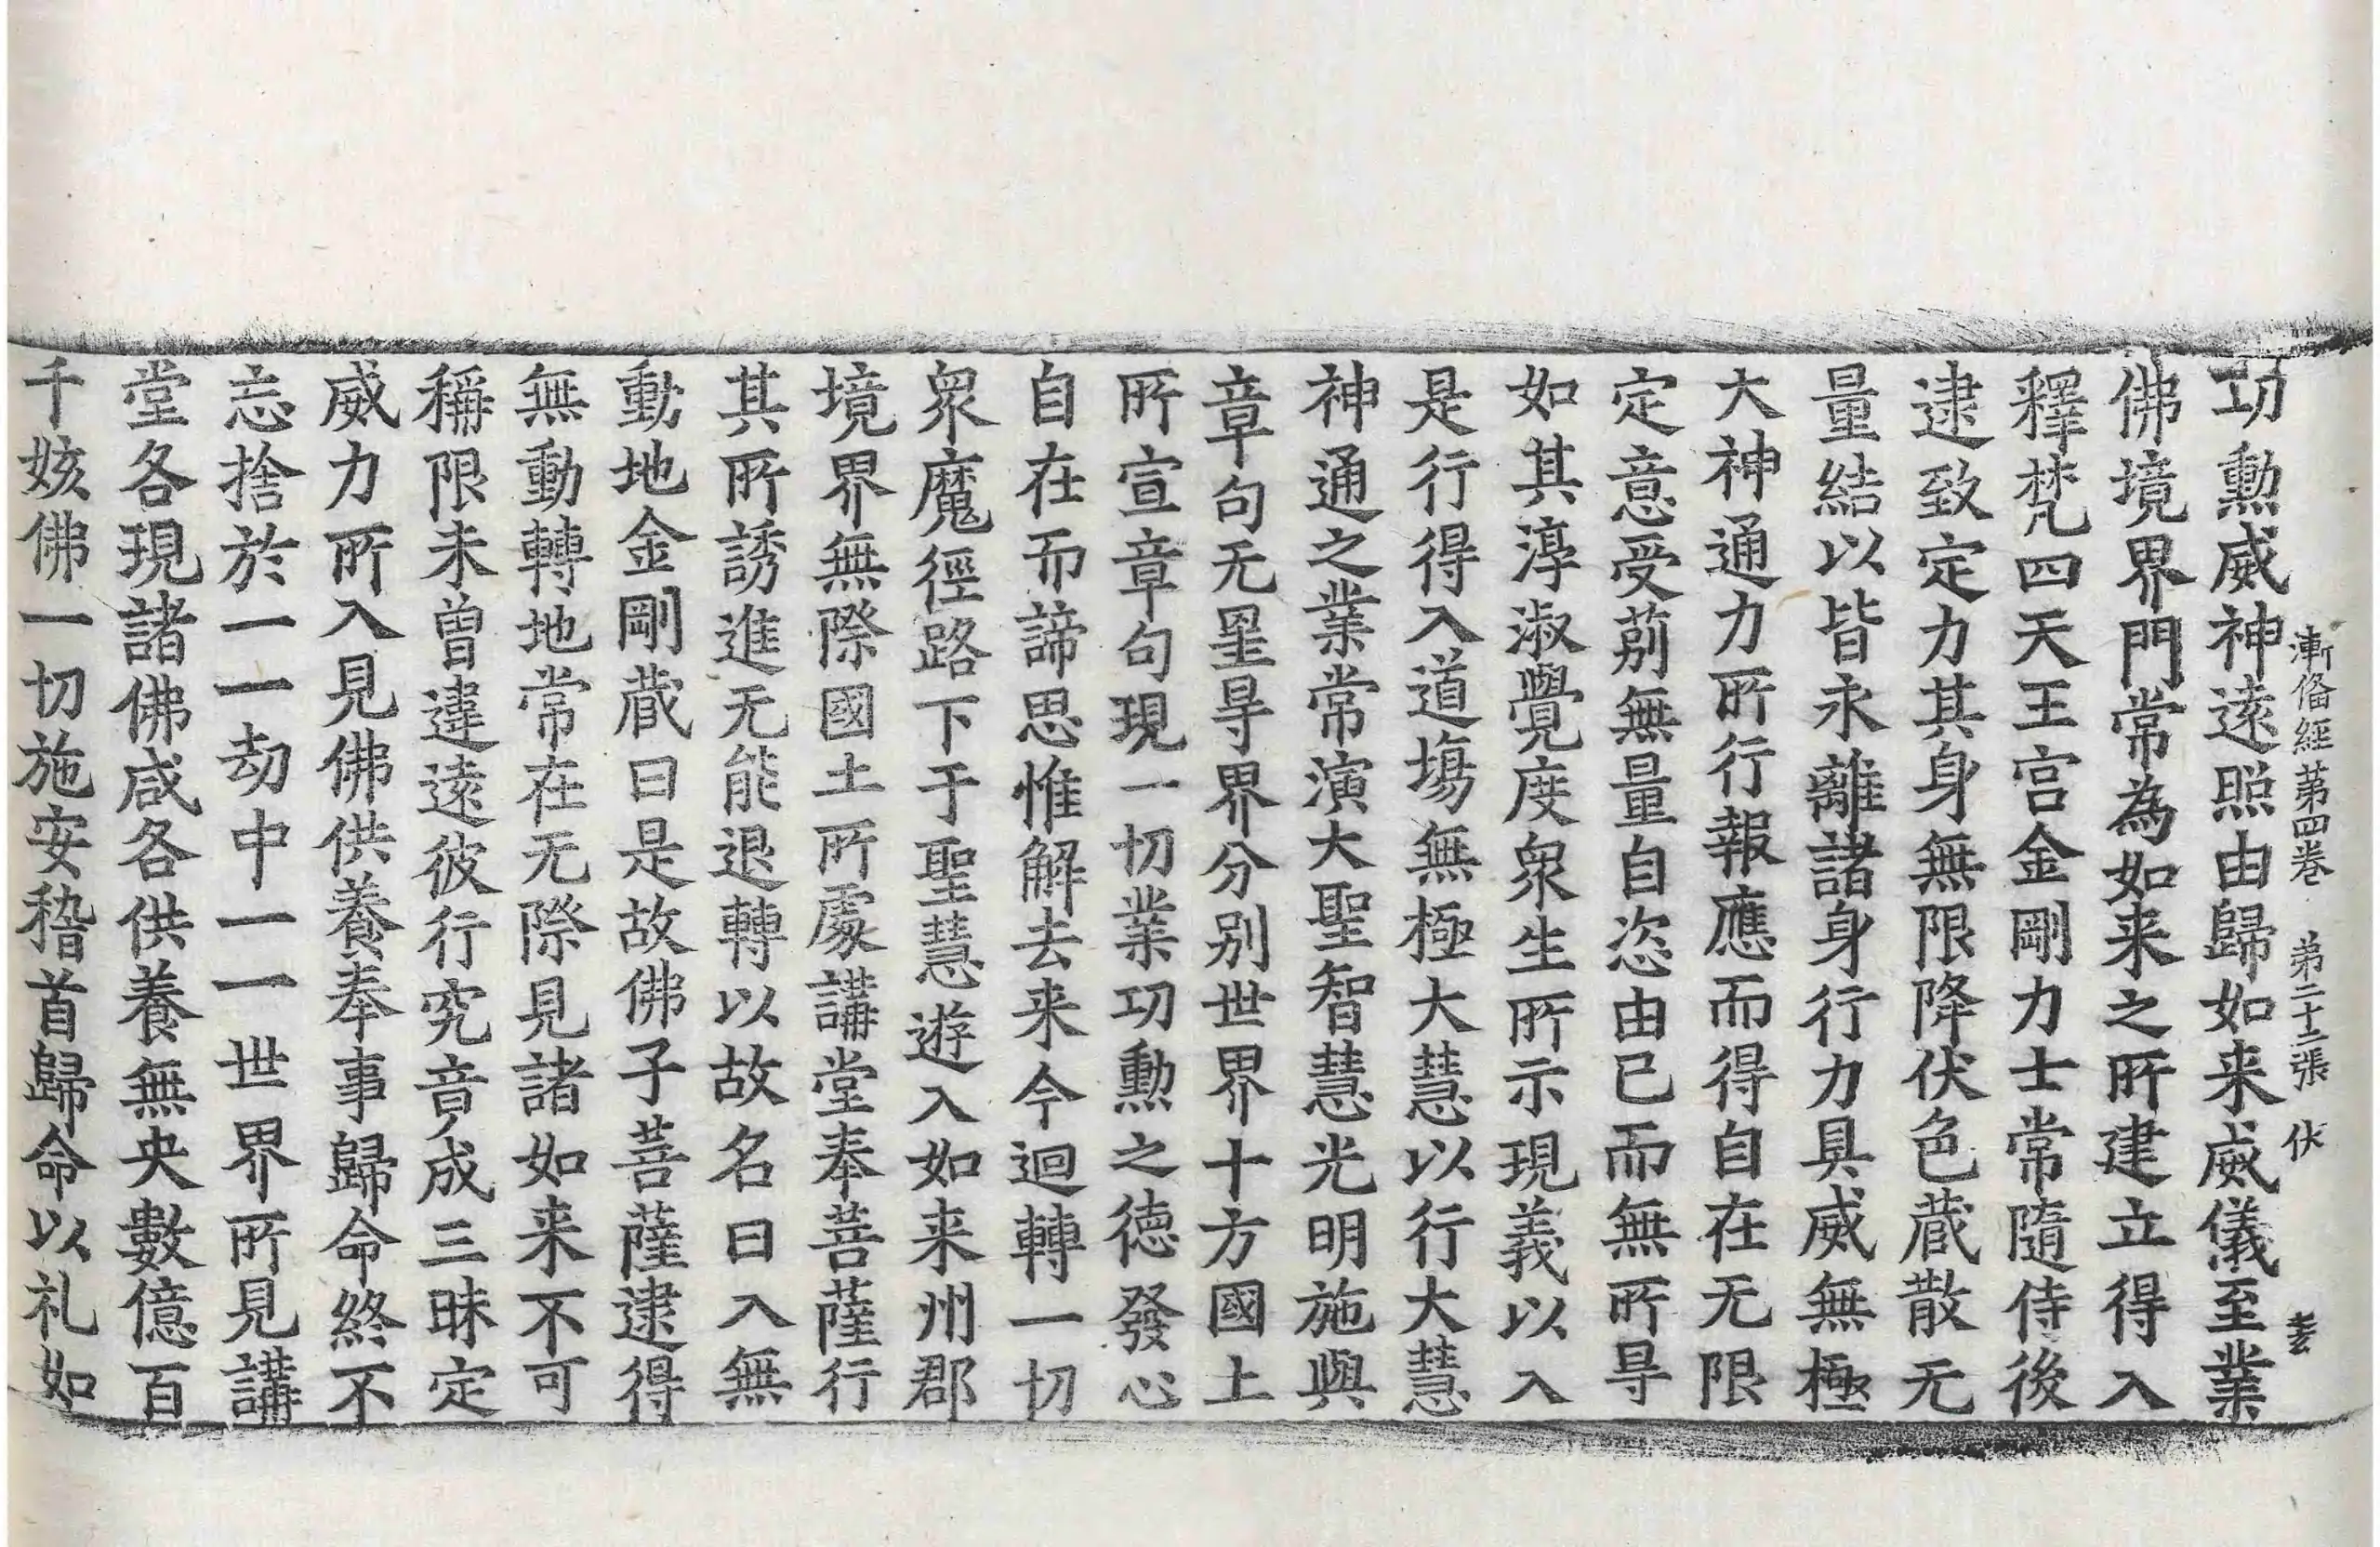 漸偹經第四巻 第二十三張 伏
功勲威神遠照由歸如来威儀至業
佛境界門常為如来之所建立得入
釋梵四天王宫金剛力士常隨侍後
逮致定力其身無限降伏色蔵散无
量結以皆永離諸身行力具威無極
大神通力所行報應而得自在无限
定意受莂無量自恣由已而無所㝵
如其淳淑覺度衆生所示現義以入
是行得入道場無極大慧以行大慧
神通之業常演大聖智慧光明施與
章句无罣㝵界分别世界十方國土
所宣章句現一切業功勲之徳發心
自在而諦思惟解去来今迴轉一切
衆魔徑路下于聖慧遊入如来州郡
境界無際國土所處講堂奉菩薩行
其所誘進无能退轉以故名曰入無
動地金剛蔵曰是故佛子菩薩逮得
無動轉地常在无際見諸如来不可
稱限未曾違遠彼行究竟成三昧定
威力所入見佛供養奉事歸命終不
忘捨於一一劫中一一世界所見講
堂各現諸佛咸各供養無央數億百
千姟佛一切施安稽首歸命以礼如